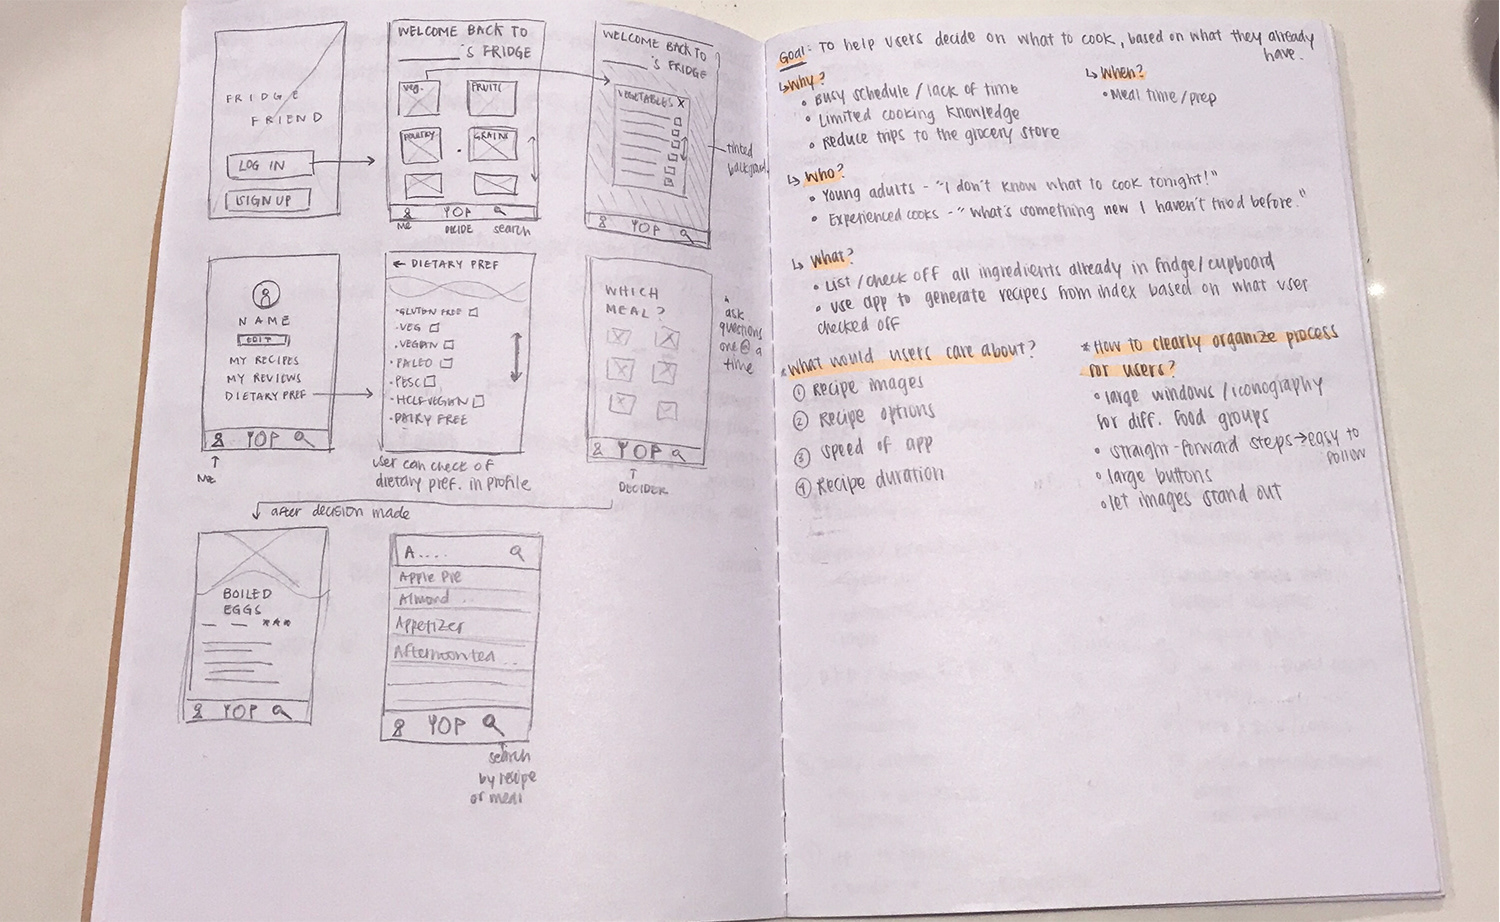 FRIDGE
FRIEND
LOG IN
SIGN UP
WELCOME BACK TO
'S FRIDGE
veg.
FRUITS
POULTRY
GRAINS
YOP
ME
DECIDE
search
WELCOME BACK TO
'S FRIDGE
VEGETABLES X
YOP
tinted
background
NAME
EDIT
MY RECIPES
MY REVIEWS
DIETARY PREF
YOP
ME
← DIETARY PREF
•GLUTEN FREE
•VEG
•VEGAN
•PALEO
•PESC
•HCLF VEGAN
•DAIRY FREE
user can check of
dietary pref. in profile
WHICH
MEAL?
YOP
DECIDER
* ask
questions
one @ a
time
after decision made
BOILED
EGGS
★★★
YOP
A....
Apple Pie
Almond ..
Appetizer
Afternoon tea ..
YOP
search
by recipe
or meal
Goal: To help users decide on what to cook, based on what they already
have.
↳ Why?
• Busy schedule / lack of time
• Limited cooking knowledge
• Reduce trips to the grocery store
↳ When?
• Meal time / prep
↳ Who?
• Young adults - "I don't know what to cook tonight!"
• Experienced cooks - "What's something new I haven't tried before."
↳ What?
• List / check off all ingredients already in fridge / cupboard
• use app to generate recipes from index based on what user
checked off
* What would users care about?
① Recipe images
② Recipe options
③ speed of app
④ Recipe duration
* How to clearly organize process
for users?
• large windows / iconography
for diff. food groups
• straight-forward steps → easy to
follow
• large buttons
• let images stand out